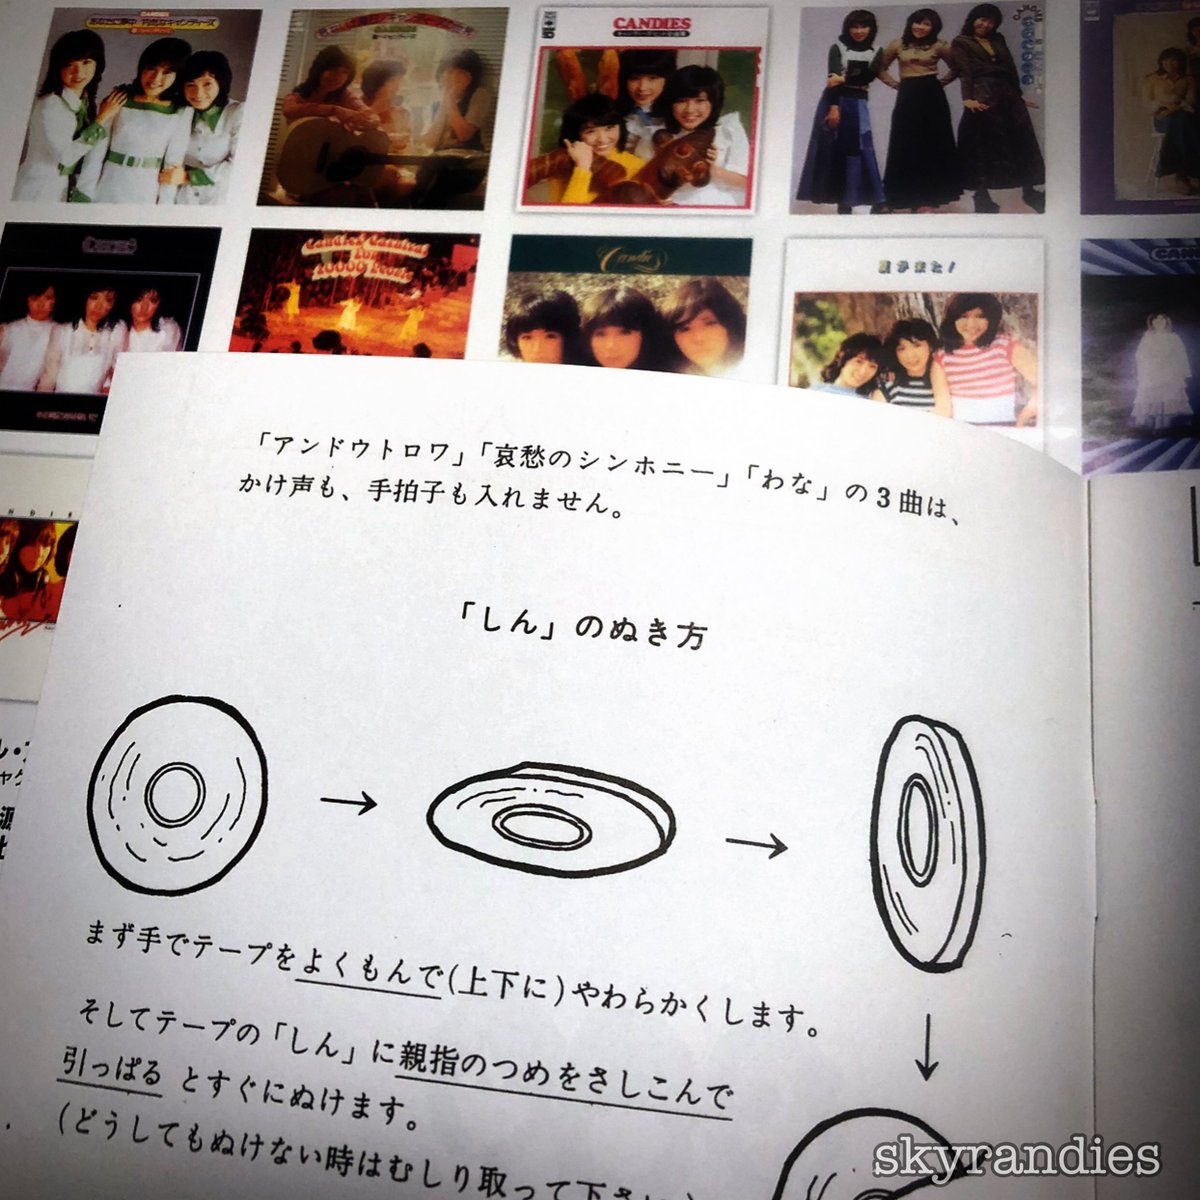 CANDIES
CANDIES
Candies Carnival
10000 People
Candies
夏が来た！
「アンドゥトロワ」「哀愁のシンホニー」「わな」の3曲は、
かけ声も、手拍子も入れません。
「しん」のぬき方
まず手でテープをよくもんで(上下に)やわらかくします。
そしてテープの「しん」に親指のつめをさしこんで
引っぱる とすぐにぬけます。
(どうしてもぬけない時はむしり取って下さい)
skyrandies